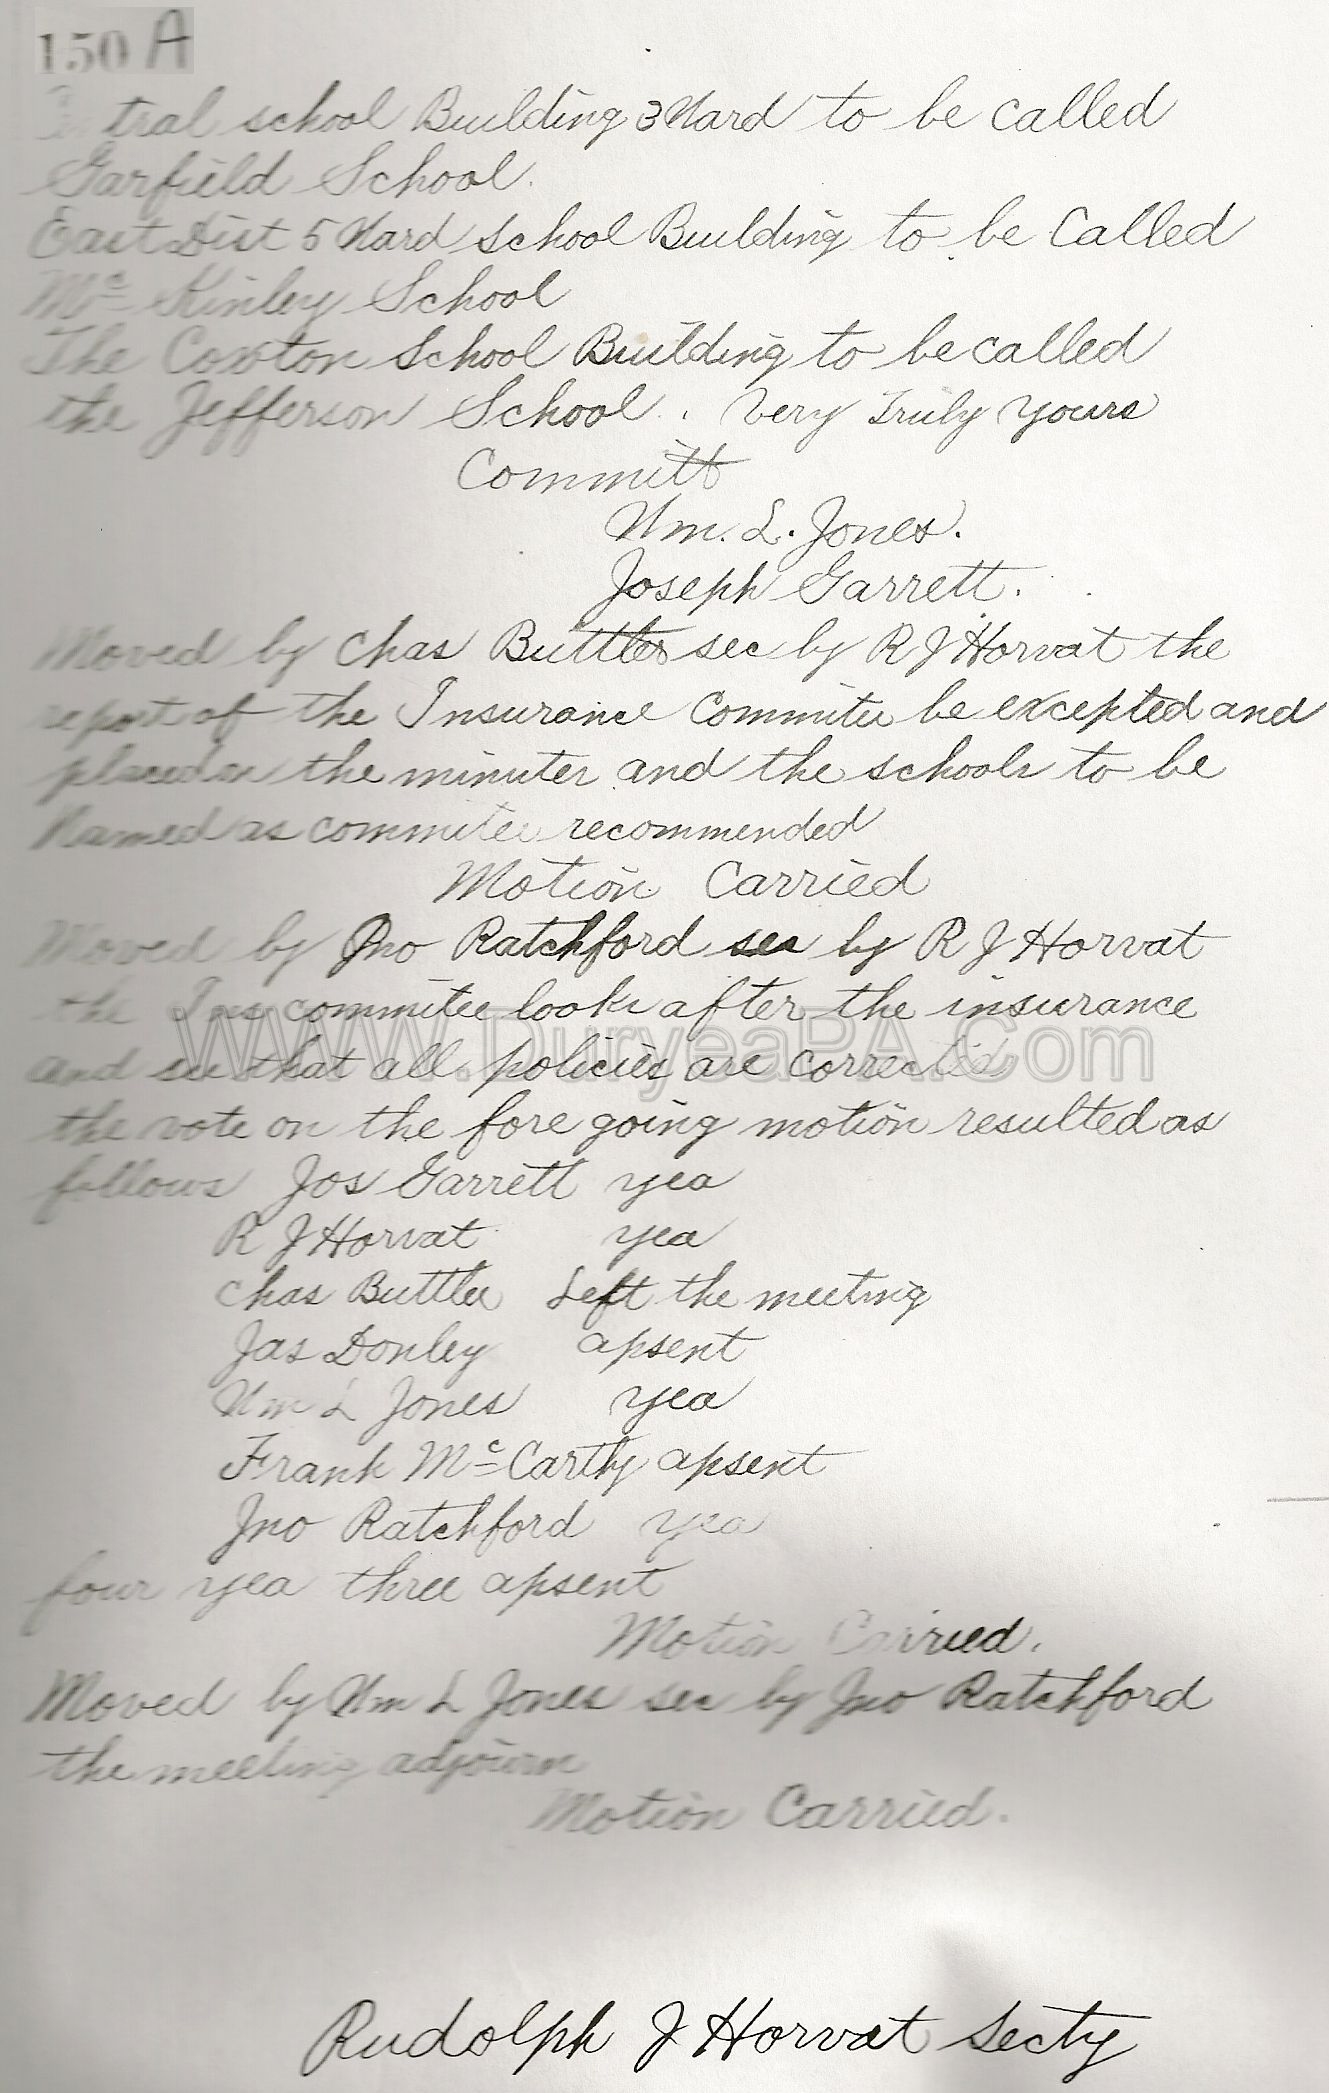 150 A
tral school Building 3 Ward to be called
Garfield School.
East Dist 5 Ward school Building to be Called
Mc Kinley School
The Coxton School Building to be called
the Jefferson School. Very Truly yours
Committ
Wm. L. Jones.
Joseph Garrett.
Moved by Chas Buttler sec by R J Horvat the
report of the Insurance Commitee be excepted and
placed on the minutes and the schools to be
Named as commitee recommended
Motion Carried
Moved by Jno Ratchford sec by R J Horvat
the Ins commitee look after the insurance
and see that all policies are corrected
the vote on the fore going motion resulted as
follows Jos Garrett yea
R J Horvat yea
Chas Buttler Left the meeting
Jas Donley apsent
Wm L Jones yea
Frank Mc Carthy apsent
Jno Ratchford yea
four yea three apsent
Motion Carried.
Moved by Wm L Jones sec by Jno Ratchford
the meeting adjourn
Motion Carried.
Rudolph J Horvat Secty
www.DuryeaPA.Com